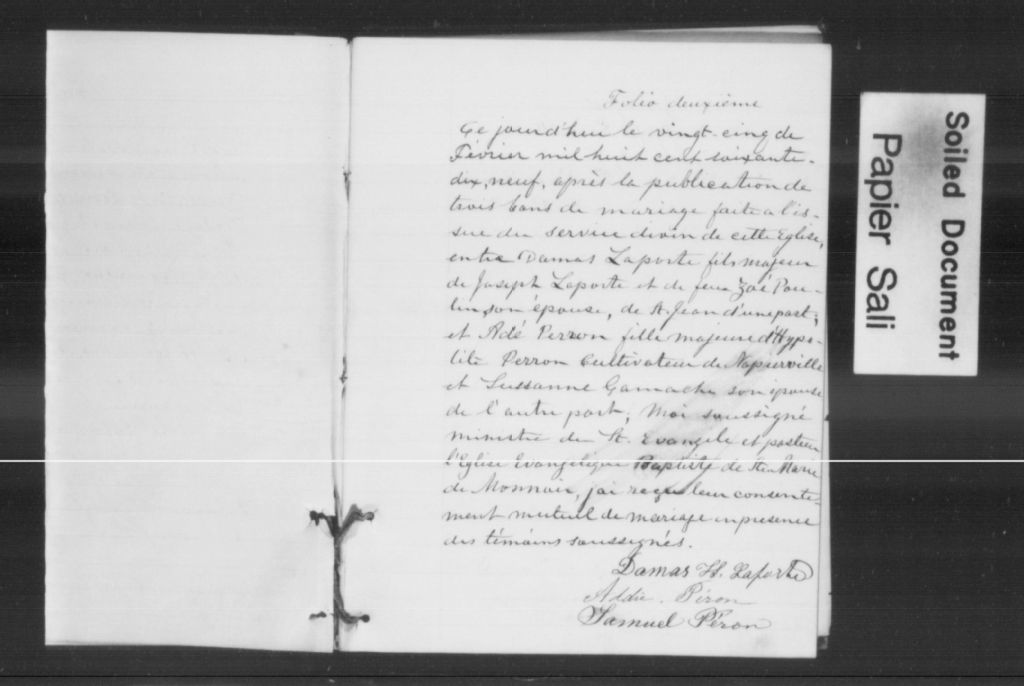 Folio deuxième
Ce jourd'hui le vingt-cinq de
Février mil huit cent soixante-
dix, neuf, après la publication de
trois bans de mariage faite a l'is-
sue du service divin de cette Eglise,
entre Damas Laporte fils majeur
de Joseph Laporte et de feue Zoé Pou-
lin, son épouse, de St. Jean d'une part;
et Adé Perron fille majeure d'Hypo-
lite Perron Cultivateur de Napierville
et Sussanne Gamache son épouse
de l'autre part; Moi soussigné
ministre du St. Evangile et pasteur
l'Eglise Evangélique Baptiste de Ste Marie
de Monnoir, j'ai reçu leur consente-
ment mutuel de mariage en presence
des témoins soussignés.
Damas H. Laporte
Aldie. Péron
Samuel Péron
Soiled Document
Papier Sali